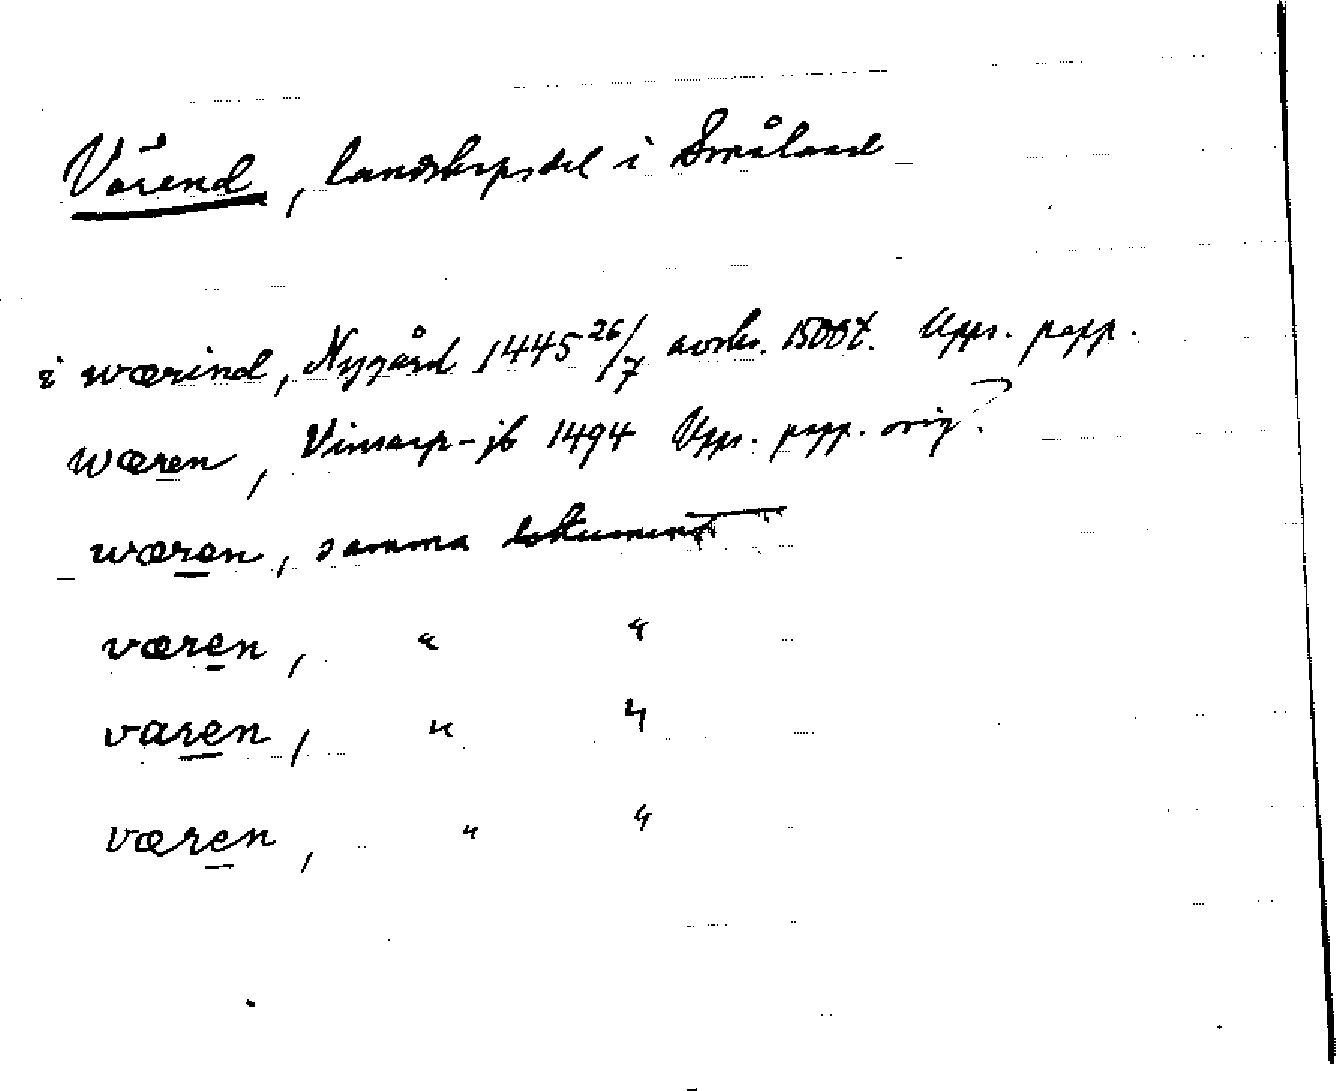 Värend, landskapsdel i Småland
i wærind, Nygård 1445 26/7 avskr. 1500t. Upps. papp.
wæren, Vinsarp-jb 1494 Upps. papp. orig?
wæren, samma dokument
væren, " "
varen, " "
væren, " "